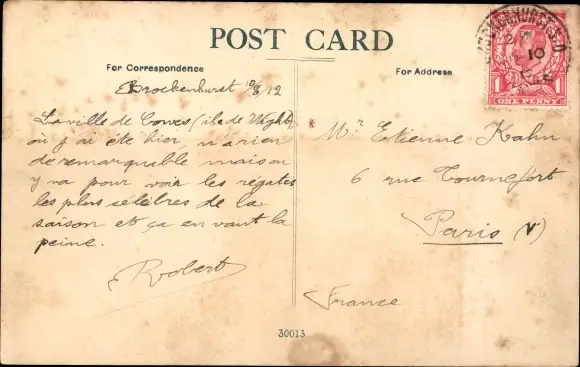 POST CARD
For Correspondence
For Address
Brockenhurst 10/8/12
La ville de Cowes (île de Wight),
où j'ai été hier, n'a rien
de remarquable mais on
y va pour voir les régates
les plus célèbres de la
saison et ça en vaut la
peine.
Robert
Mr Etienne Kahn
6 rue Tournefort
Paris (V)
France
ONE PENNY
1
10
30013